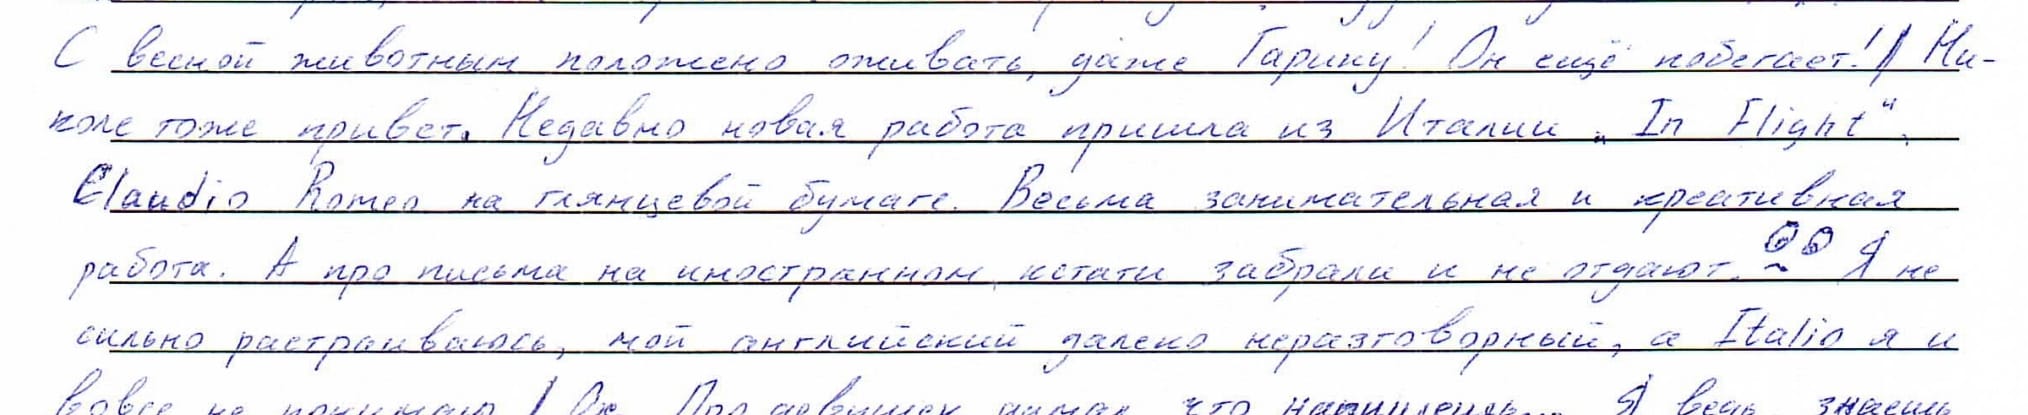 С весной животным положено оживать, даже Гарику! Он ещё побегает! || Ни-
коле тоже привет. Недавно новая работа пришла из Италии „In Flight",
Claudio Romeo на глянцевой бумаге. Весьма занимательная и креативная
работа. А про письма на иностранном, кстати забрали и не отдают. Я не
сильно растраиваюсь, мой английский далеко неразговорный, а Italio я и
вовсе не понимаю